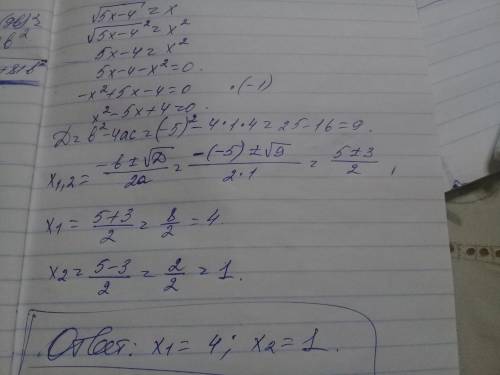 √5x-4 = x
√5x-4² = x²
5x-4 = x²
5x-4-x²=0.
-x²+5x-4=0 ·(-1)
x²-5x+4=0.
D=b²-4ac=(-5)²-4·1·4=25-16=9.
x1,2= -b±√D/2a = -(-5)±√9/2·1 = 5±3/2,
x1= 5+3/2 = 8/2 = 4.
x2= 5-3/2 = 2/2 = 1.
Ответ: x1=4; x2=1.